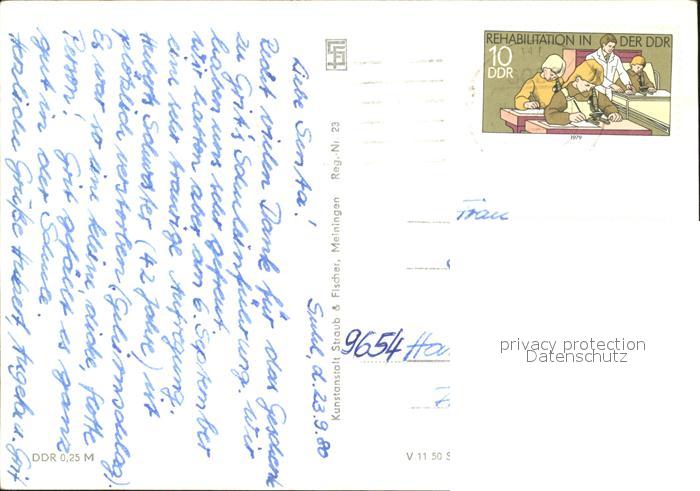 Suhl, d. 23.9.80
Liebe Senta!
Recht vielen Dank für das Geschenk
zu Grit's Schuleinführung. Wir
haben uns sehr gefreut.
Wir hatten aber am 6. September
eine sehr traurige Aufregung.
Huberts Schwester (42 Jahre) ist
plötzlich verstorben (Gehirnschlag).
Es war so eine kleine, dicke, flotte
Person. Grit gefällt es ganz
gut in der Schule.
Herzliche Grüße Hubert, Angela u. Grit
DDR 0,25 M
Kunstanstalt Straub & Fischer, Meiningen Reg.-Nr. 23
V 11 50
REHABILITATION IN DER DDR
10
DDR
1979
Frau
9654
privacy protection
Datenschutz